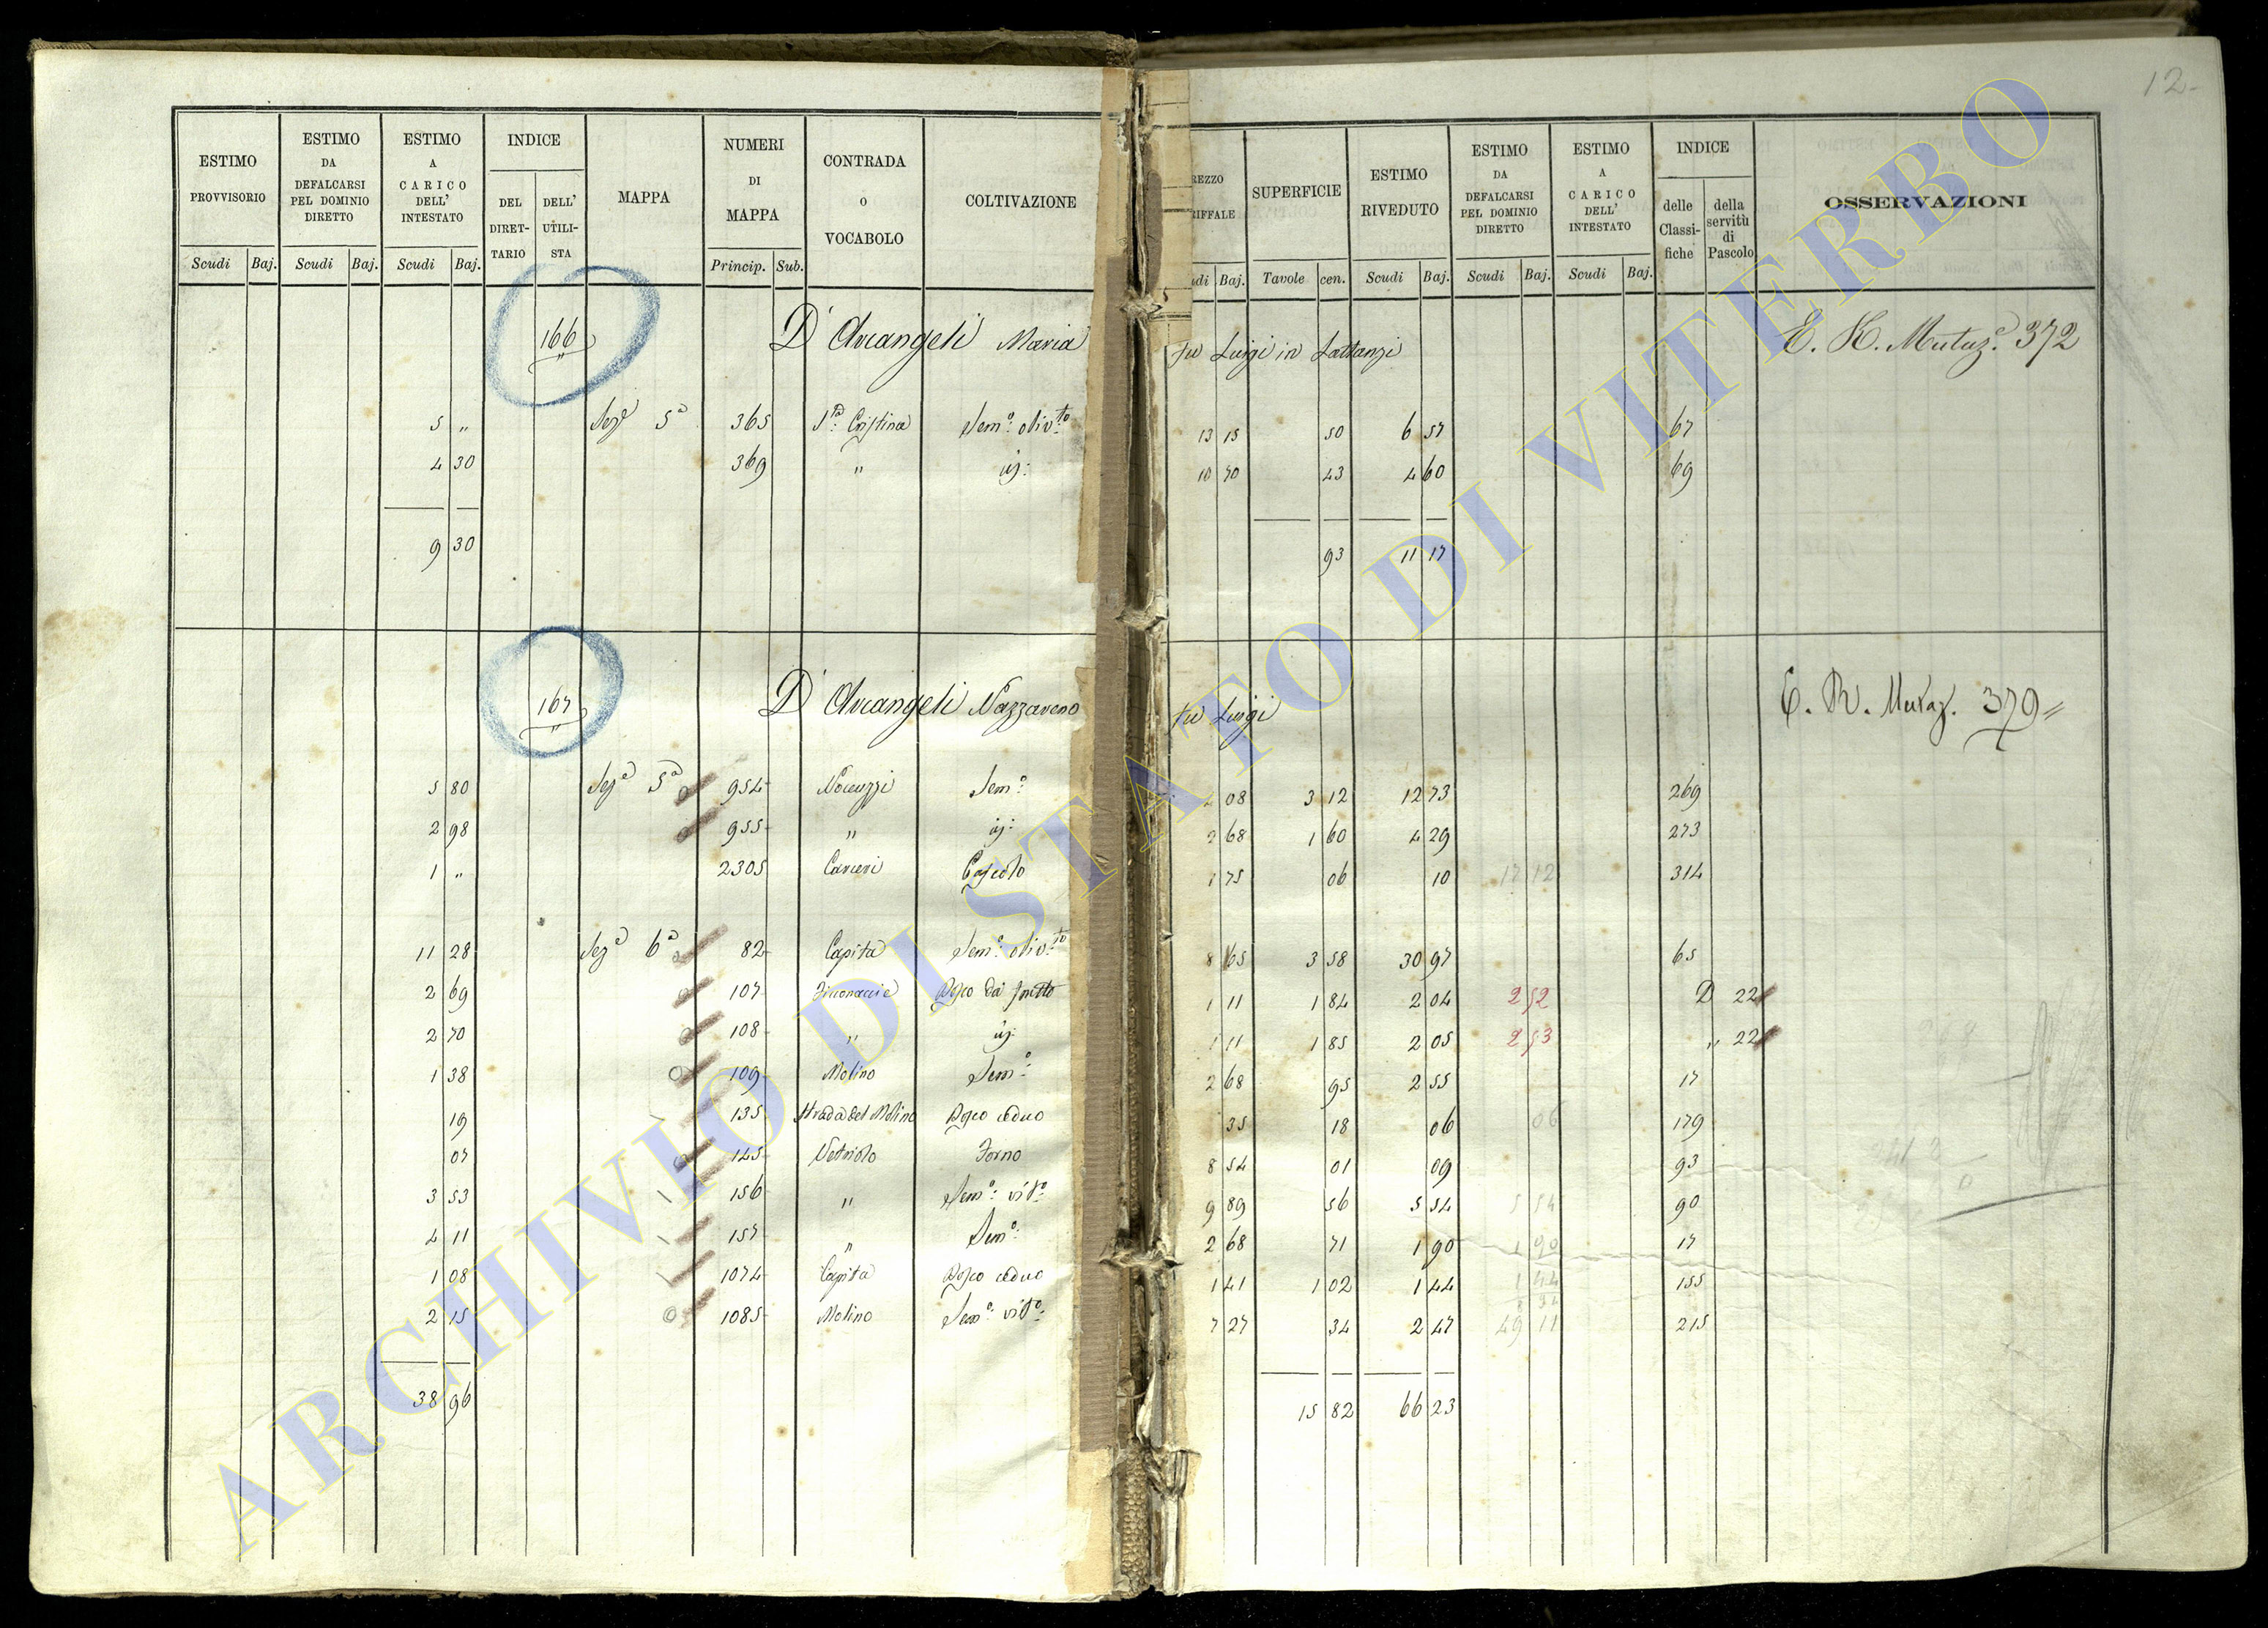 12-
ESTIMO PROVVISORIO Scudi Baj.
ESTIMO DA DEFALCARSI PEL DOMINIO DIRETTO Scudi Baj.
ESTIMO A CARICO DELL' INTESTATO Scudi Baj.
INDICE DEL DIRET-TARIO DELL' UTILI-STA
MAPPA
NUMERI DI MAPPA Princip. Sub.
CONTRADA o VOCABOLO
COLTIVAZIONE
REZZO RIFFALE di Baj.
SUPERFICIE Tavole cen.
ESTIMO RIVEDUTO Scudi Baj.
ESTIMO DA DEFALCARSI PEL DOMINIO DIRETTO Scudi Baj.
ESTIMO A CARICO DELL' INTESTATO Scudi Baj.
INDICE delle Classi-fiche della servitù di Pascolo
OSSERVAZIONI
166 D'Arcangeli Maria fu Luigi in Lattanzi Mutaz.e 372
5 " Seze 5a 365 Sta Cristina Semo olivto 13 15 50 6 57 67
4 30 369 " id: 10 70 43 4 60 69
9 30 93 11 17
167 D'Arcangeli Nazzareno fu Luigi Mutaz. 379
5 80 Seze 5a 954 Nocuzzi Semo 08 3 12 12 73 269
2 98 955 " id: 2 68 1 60 4 29 273
1 " 2305 Carceri Pascolo 1 75 06 10 17 12 314
11 28 Seze 6a 82 Capita Semo olivto 8 65 3 58 30 97 65
2 69 107 Bosco da frutto 1 11 1 84 2 04 2 52 D 22
2 70 108 " id: 1 11 1 85 2 05 2 53 " 22
1 38 109 Molino Semo 2 68 95 2 55 17
19 135 Strada del Molino Bosco ceduo 35 18 06 06 179
07 145 Vetriolo Forno 8 54 01 09 93
3 53 156 " Semo vito 9 89 56 5 54 5 54 90
4 11 157 " Semo 2 68 71 1 90 1 90 17
1 08 1074 Capita Bosco ceduo 1 41 1 02 1 44 1 44 155
2 15 1085 Molino Semo vito 7 27 34 2 47 49 11 215
38 96 15 82 66 23
ARCHIVIO DI STATO DI VITERBO